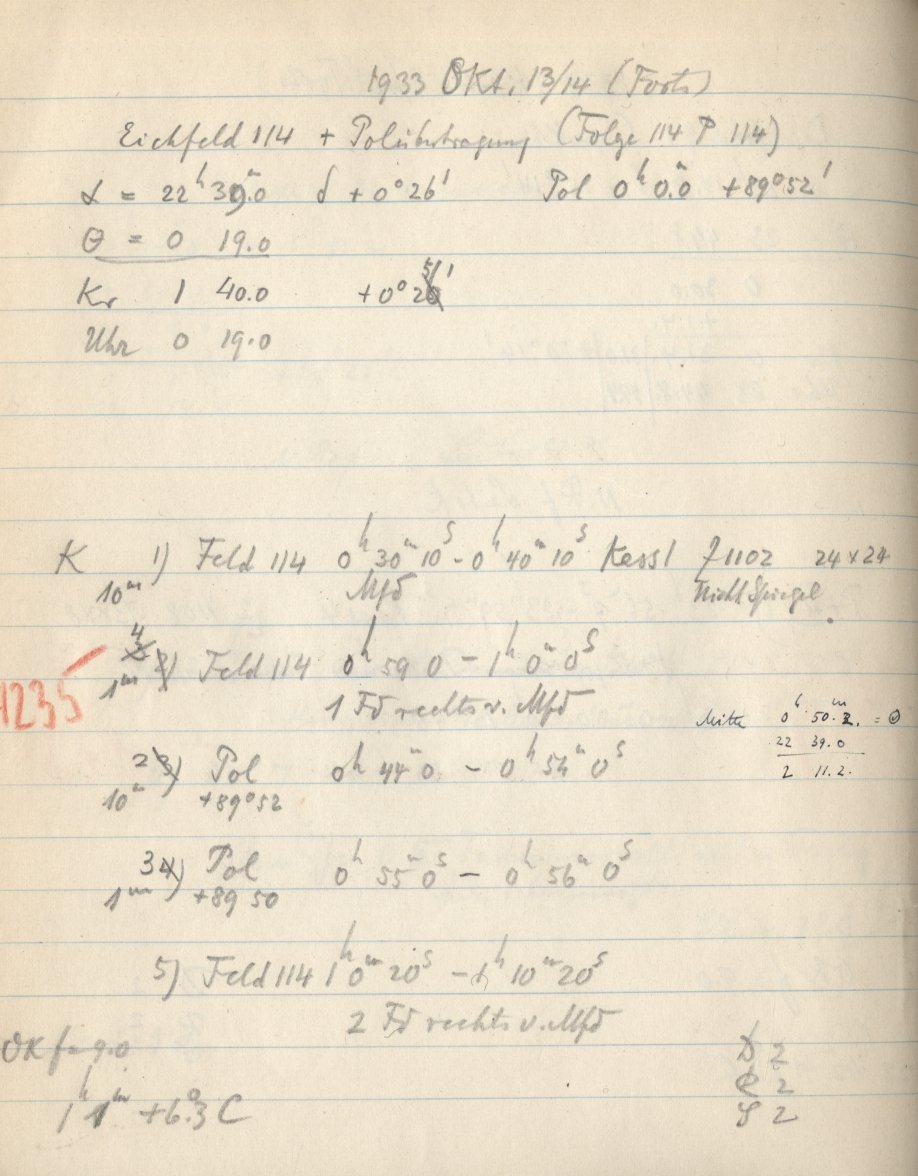 1933 Okt. 13/14 (Forts)
Eichfeld 114 + Polübertragung (Folge 114 P 114)
α = 22h 39m.0 δ + 0° 26' Pol 0h 0m.0 +89° 52'
θ = 0 19.0
Kr 1 40.0 + 0° 51'
Uhr 0 19.0
K 1) Feld 114 0h 30m 10s - 0h 40m 10s Kassl 24 x 24
10m Mfd Nicht Spiegel
4) Feld 114 0h 59 0 - 1h 0m 0s
1m 1 Fd rechts v. Mfd
1235
Mitte 0h 50m.2. = θ
22 39.0
2 11.2.
2) Pol 0h 44m 0 - 0h 54m 0s
10m +89° 52
3) Pol 0h 55m 0s - 0h 56m 0s
1m +89 50
5) Feld 114 1h 0m 20s - 1h 10m 20s
2 Fd rechts v. Mfd
OK f = 9.0
D 2
R 2
1h 1m +6°.3 C
S 2